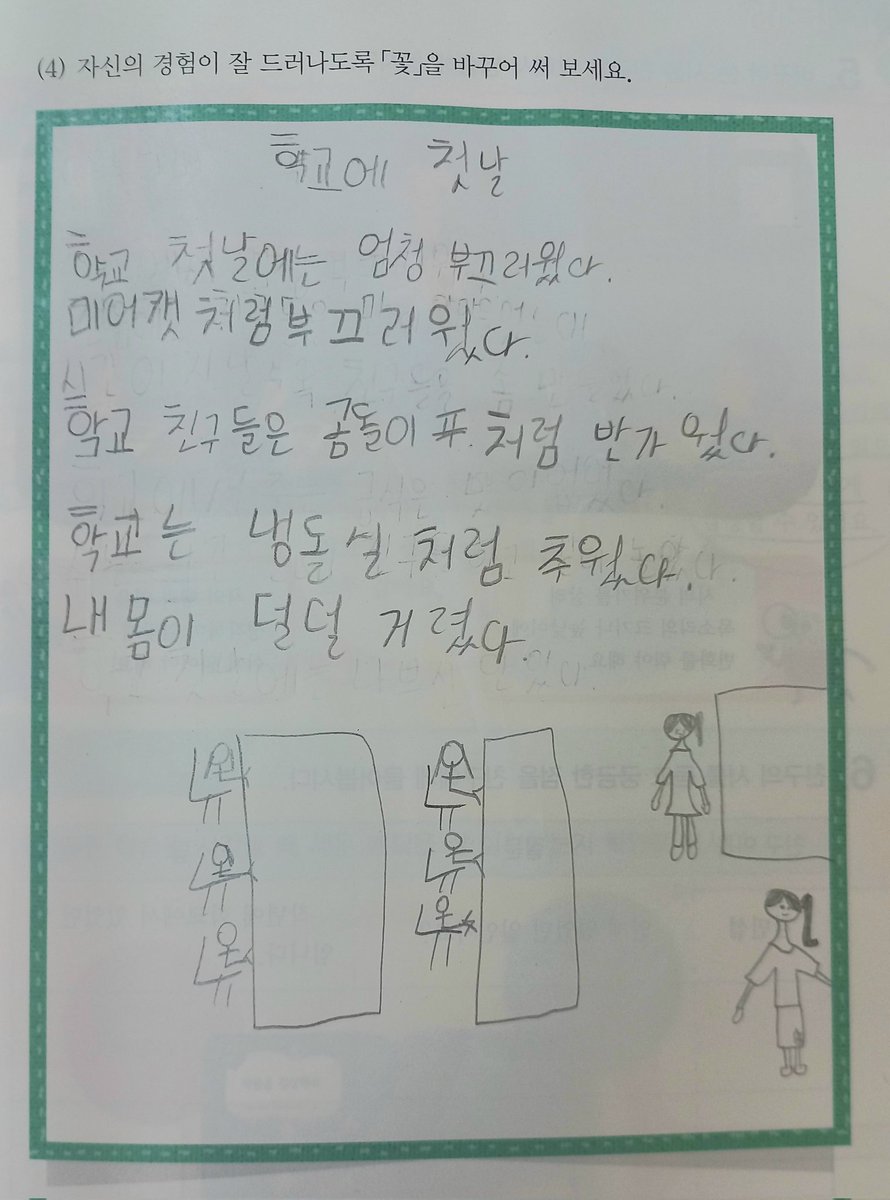 (4) 자신의 경험이 잘 드러나도록 「꽃」을 바꾸어 써 보세요.
학교에 첫날
학교 첫날에는 엄청 부끄러웠다.
미어캣 처럼 부끄러웠다.
학교 친구들은 곰돌이 푸 처럼 반가웠다.
학교는 냉돌실 처럼 추웠다.
내 몸이 덜덜 거렸다.